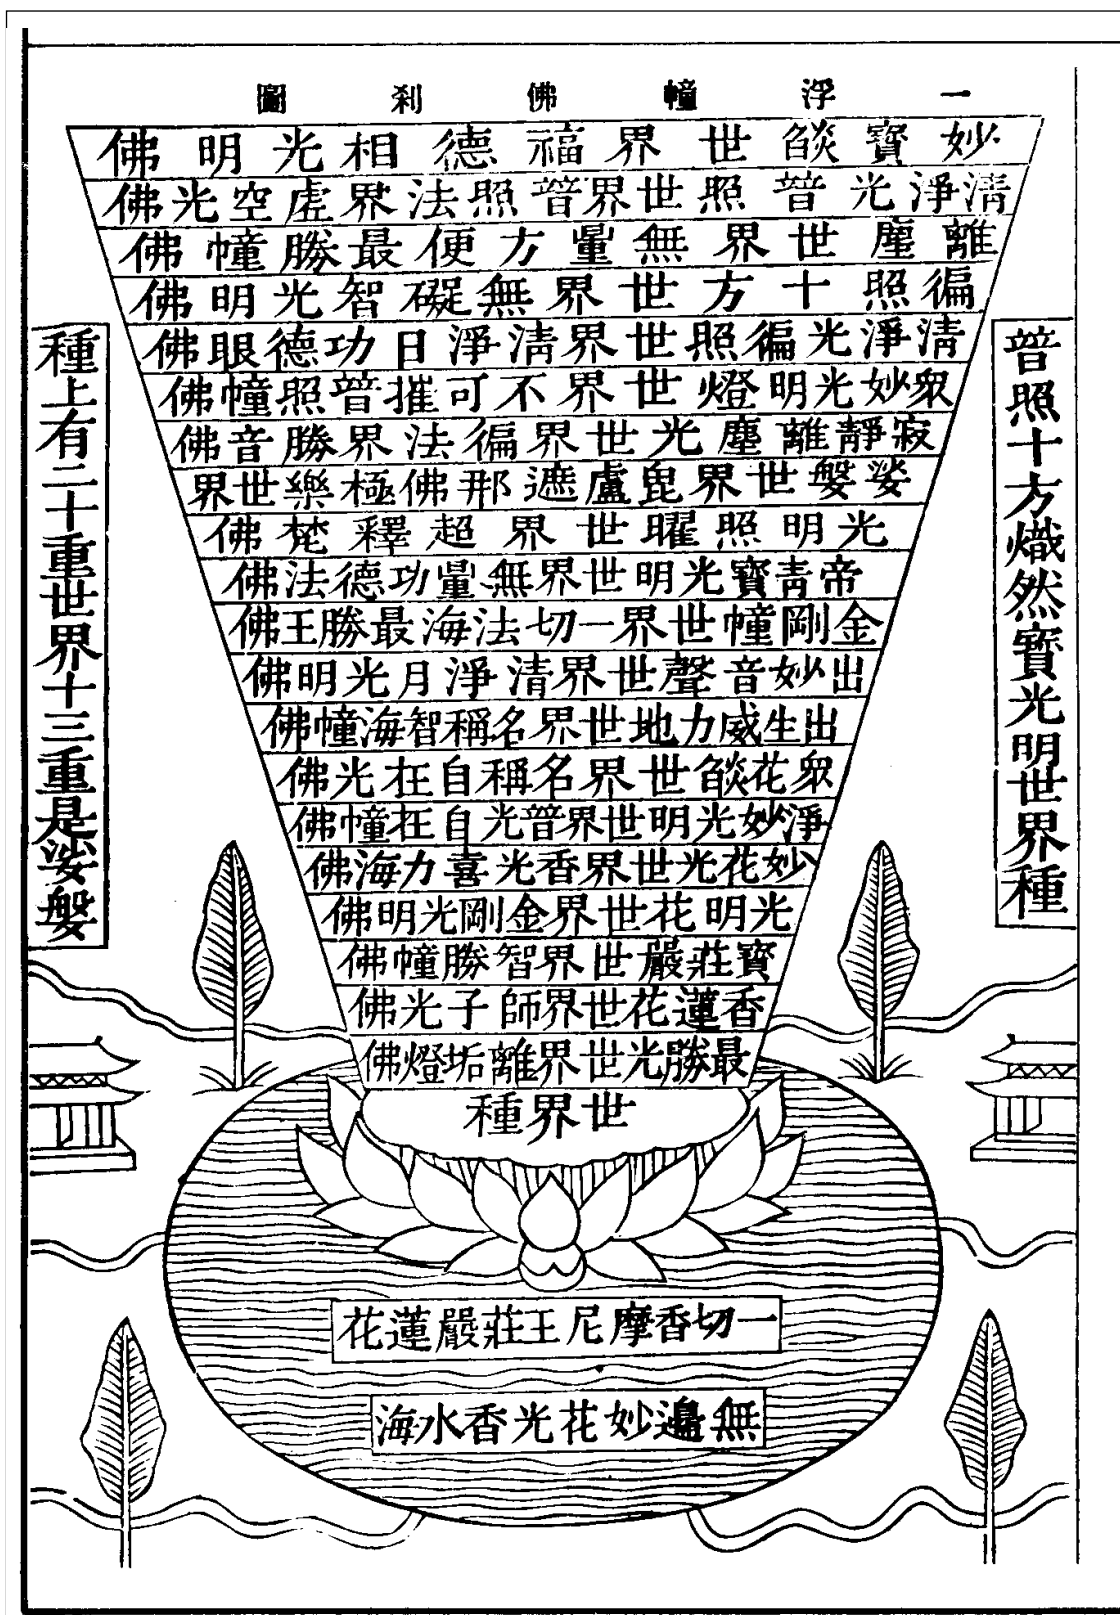 一浮幢佛刹圖
普照十方熾然寶光明世界種
妙寶燄世界福德相光明佛
清淨光普照世界普照法界虛空光佛
離塵世界無量方便最勝幢佛
徧照十方世界無礙智光明佛
清淨光徧照世界清淨日功德眼佛
眾妙光明燈世界不可摧普照幢佛
寂靜離塵光世界徧法界勝音佛
娑媻世界毘盧遮那佛極樂世界
光明照曜世界超釋梵佛
帝青寶光明世界無量功德法佛
金剛幢世界一切法海最勝王佛
出妙音聲世界清淨月光明佛
出生威力地世界名稱智海幢佛
眾花燄世界名稱自在光佛
淨妙光明世界普光自在幢佛
妙花光世界香光喜力海佛
光明花世界金剛光明佛
寶莊嚴世界智勝幢佛
香蓮花世界師子光佛
最勝光世界離垢燈佛
世界種
一切香摩尼王莊嚴蓮花
無邊妙花光香水海
種上有二十重世界十三重是娑媻